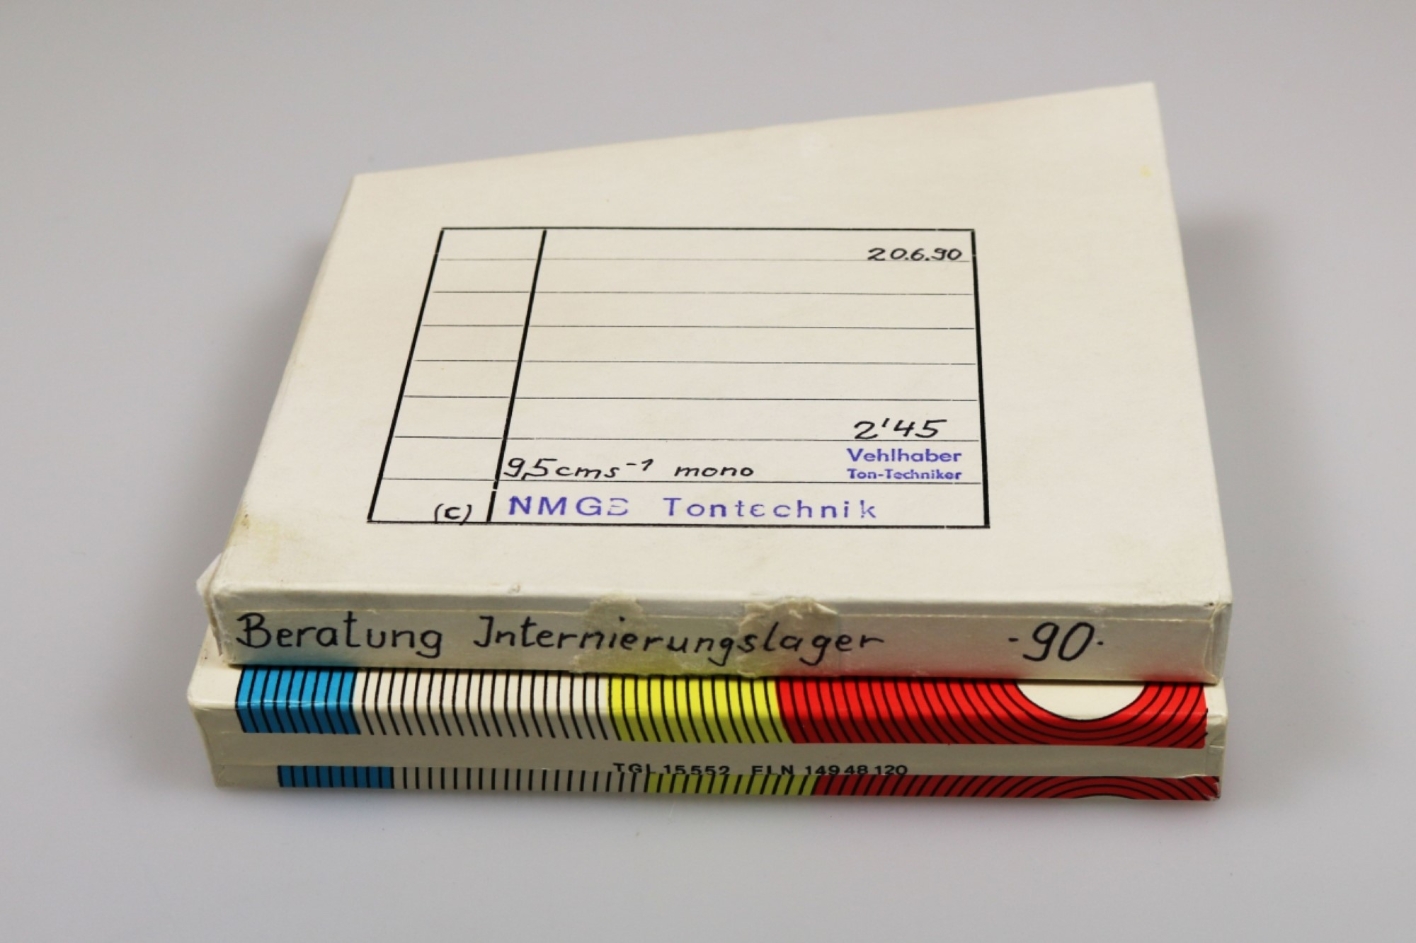 20.6.90
2'45
Vehlhaber
Ton-Techniker
9,5cms⁻¹ mono
(c) NMGB Tontechnik
Beratung Internierungslager -90-
TGL 15552 ELN 149 48 120